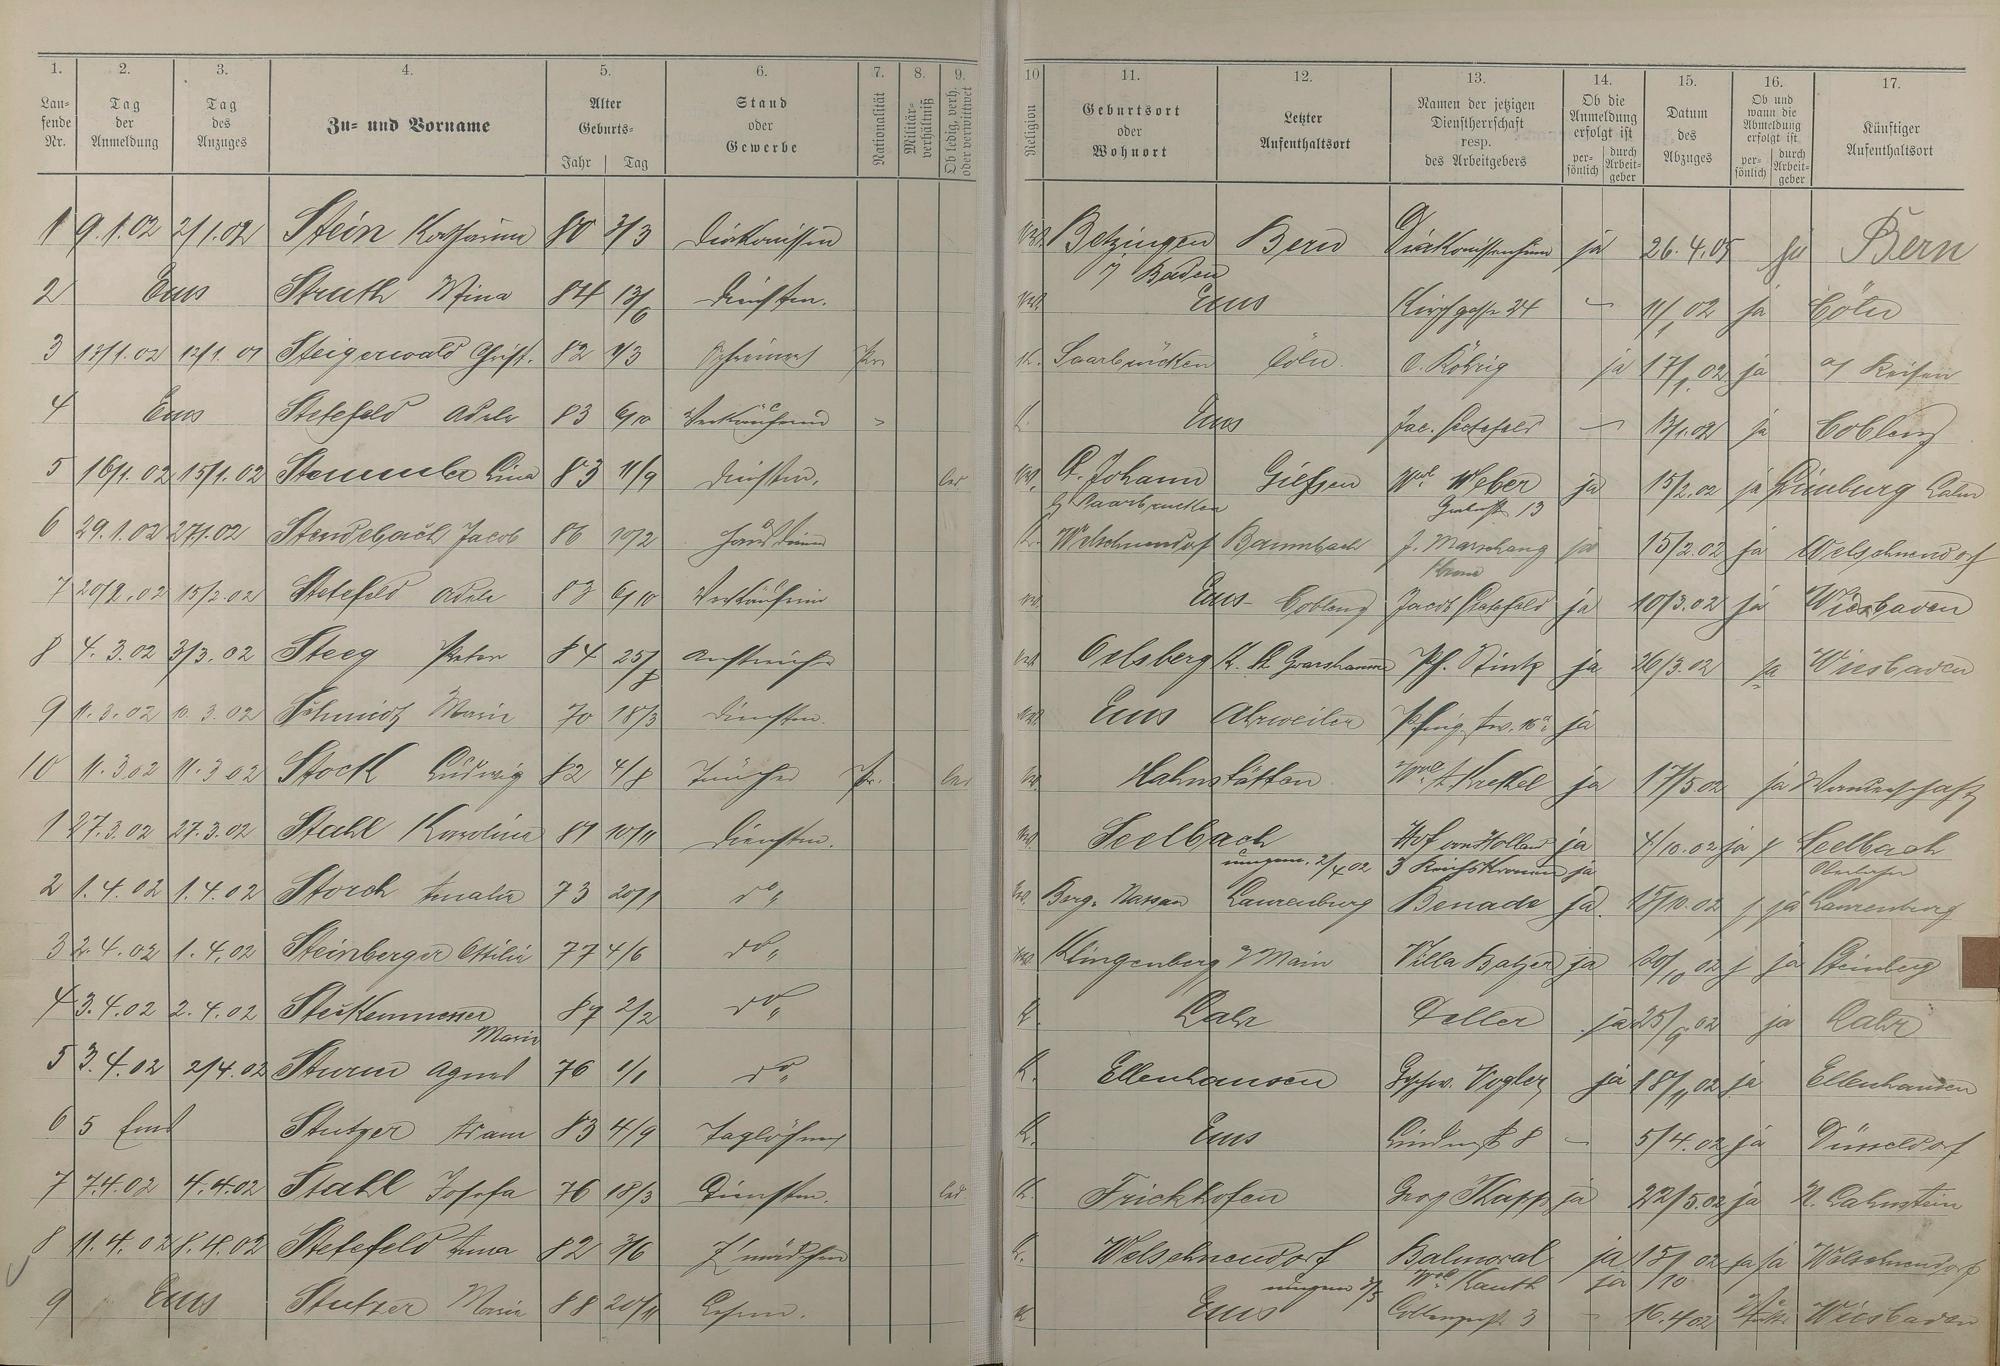 1. 2. 3. 4. 5. 6. 7. 8. 9. 10 11. 12. 13. 14. 15. 16. 17.
Lau-
fende
Nr.
Tag
der
Anmeldung
Tag
des
Anzuges
Zu- und Vorname
Alter
Geburts-
Jahr Tag
Stand
oder
Gewerbe
Nationalität
Militär-
verhältniß
Ob ledig, verh.
oder verwittwet
Religion
Geburtsort
oder
Wohnort
Letzter
Aufenthaltsort
Namen der jetzigen
Dienstherrschaft
resp.
des Arbeitgebers
Ob die
Anmeldung
erfolgt ist
per-
sönlich
durch
Arbeit-
geber
Datum
des
Abzuges
Ob und
wann die
Abmeldung
erfolgt ist
per-
sönlich
durch
Arbeit-
geber
Künftiger
Aufenthaltsort
1 9.1.02 2/1.02 Stein Katharina 80 3/3 Diakonissin Betzingen Bern Diakonissenheim ja 26.4.05 ja Bern
Baden
2 Ems Struth Mina 84 13/6 Dienstm. Ems Kirchgasse 24 – 11/1 02 ja Cöln
3 13/1.02 12/1.01 Steigerwald Christ. 82 1/3 Schreiner Pr. K. Saarbrücken Cöln. O. Röhrig ja 17/1 02 ja a/ Reisen
4 Ems Stetefeld Adele 83 6/10 Verkäuferin K. Ems Jac. Stetefeld – 13/1.02 ja Coblenz
5 16/1.02 15/1.02 Stemmler Lina 83 11/9 Dienstm. led St. Johann Giessen Wwe Weber ja 15/2.02 ja Limburg Lahn
Saarbrücken 13
6 29.1.02 27.1.02 Stendebach Jacob 86 10/2 Hausdiener K. Welschneudorf Baumbach J. Marschang ja 15/2.02 ja Welschneudorf
Krone
7 20/2.02 15/2.02 Stetefeld Adele 83 6/10 Verkäuferin Ems – Coblenz Jacob Stetefeld ja 10/3.02 ja Wiesbaden
8 4.3.02 3/3.02 Steeg Peter 84 25/8 Anstreicher Oelsberg Ph. Stintz ja 26/3.02 ja Wiesbaden
9 11.3.02 10.3.02 Schmidt Marie 70 18/3 Dienstm. Ems Ahrweiler ja
10 11.3.02 11.3.02 Stock Ludwig 82 4/8 Tüncher Pr. led Hahnstätten Krekel ja 17/5 02 ja Wanderschaft
1 27.3.02 27.3.02 Stahl Karolina 81 10/11 Dienstm. Seelbach Hof von Holland ja 4/10.02 ja Seelbach
umgem. 2/4 02 3 Reichskronen ja
2 1.4.02 1.4.02 Storch Amalie 73 20/1 do " Berg. Nassau Laurenburg Benade ja 15/10.02 ja Laurenburg
3 2.4.02 1.4.02 Steinberger Ottilie 77 4/6 do " Klingenberg a/ Main Villa Balzer ja 20/10 02 ja Steinberg
4 3.4.02 2.4.02 Steikemesser 2/2 do " K. Lahr Deller ja 25/9 02 ja Lahr
Marie
5 3.4.02 2/4.02 Sturm Agnes 76 1/1 do " K. Ellenhausen Geschw. Vogler ja 18/11 02 ja Ellenhausen
6 5 Ems Stutzer Adam 83 4/9 Taglöhner K. Ems Lindenst. 8 – 5/4.02 ja Düsseldorf
7 7.4.02 4.4.02 Stahl Josefa 76 18/3 Dienstm. led. K. Frickhofen Georg Kapp ja 22/5.02 ja N. Lahnstein
8 11.4.02 8.4.02 Stetefeld Anna 82 3/6 Z mädchen K. Welschneudorf Balmoral ja 15/10 02 ja Welschneudorf
umgem 3/5 Wwe Kauth ja
9 Ems Stutzer Maria 88 20/11 K Ems 3 – 16.4 02 Wiesbaden